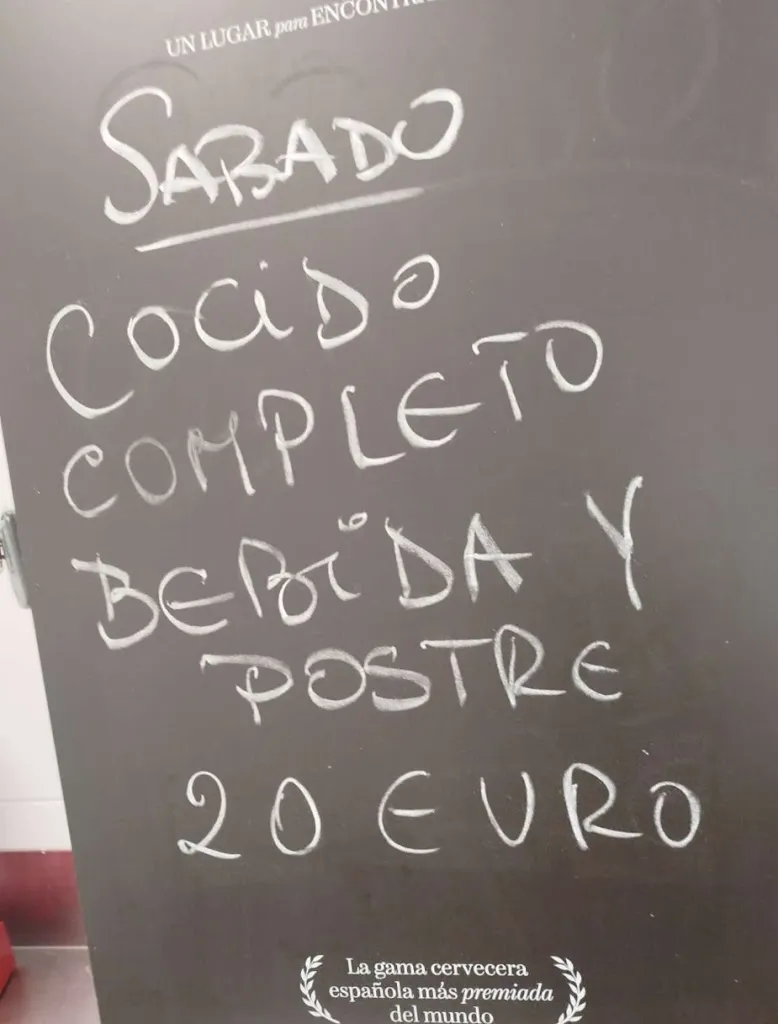 UN LUGAR para
SABADO
COCiDO
COMPLETO
BEBiDA Y
POSTRE
20 EURO
La gama cervecera
española más premiada
del mundo